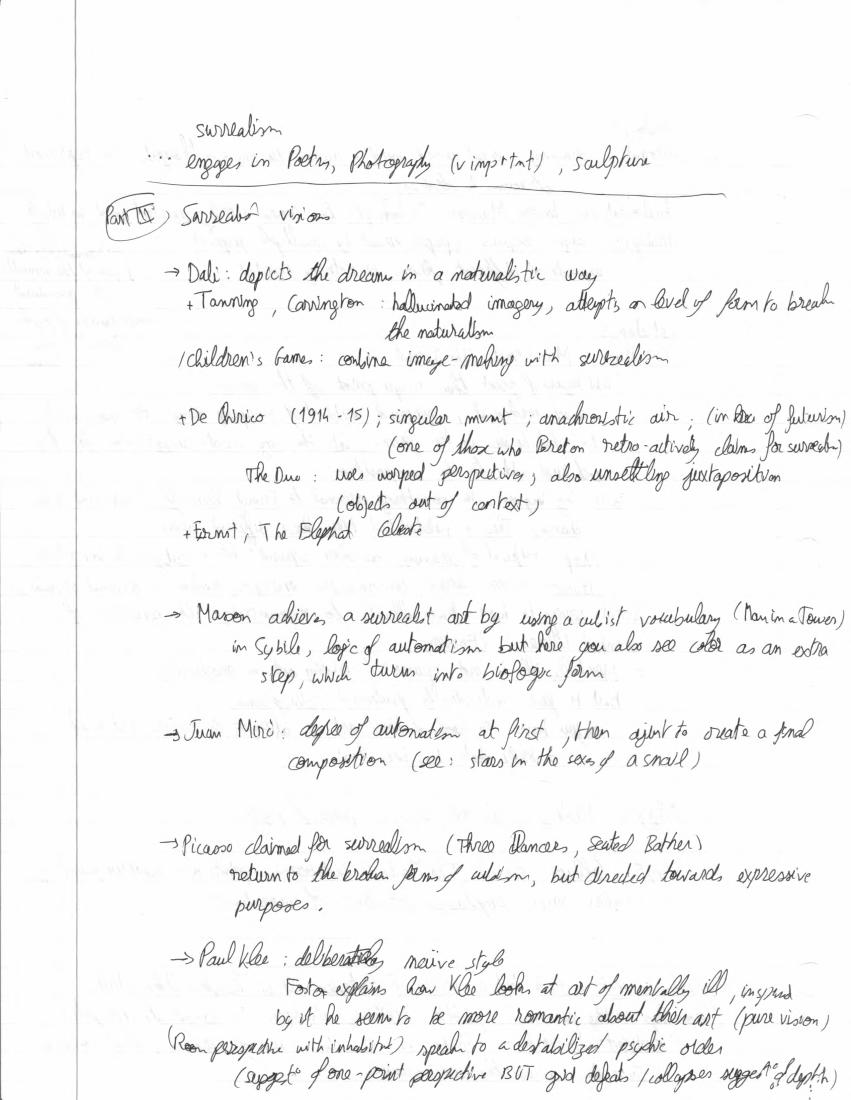 surrealism
... engages in Poetry, Photography (v importnt), sculpture
Part III) Surrealist visions
→ Dali: depicts the dream in a naturalistic way
+ Tanning, Carrington: hallucinated imagery, attempts on level of form to break
the naturalism
/Children's Games: combine image-making with surrealism
+ De Chirico (1914-15); singular mvmt; anachronistic air; (in of futurism)
(one of those who Breton retro-actively claims for surrealism)
The Duo: uses warped perspectives, also unsettling juxtaposition
(objects out of context)
+ Ernst, The Elephat Celeste
→ Masson achieves a surrealist art by using a cubist vocabulary (Man in a Tower)
in Sybile, logic of automatism but here you also see color as an extra
step, which turns into biologic form
→ Juan Miró: degree of automatism at first, then ajust to create a final
composition (see: stars in the sexes of a snail)
→ Picasso claimed for surrealism (Three Dancers, Seated Bather)
return to the broken forms of cubism, but directed towards expressive
purposes.
→ Paul Klee: deliberately naïve style
Foster explains how Klee looks at art of mentally ill, inspired
by it he seems to be more romantic about their art (pure vision)
(Room perspective with inhabitnt) speaks to a destabilized psychic order
(suggest° of one-point perspective BUT grid defeats/collapses suggest° of depth)